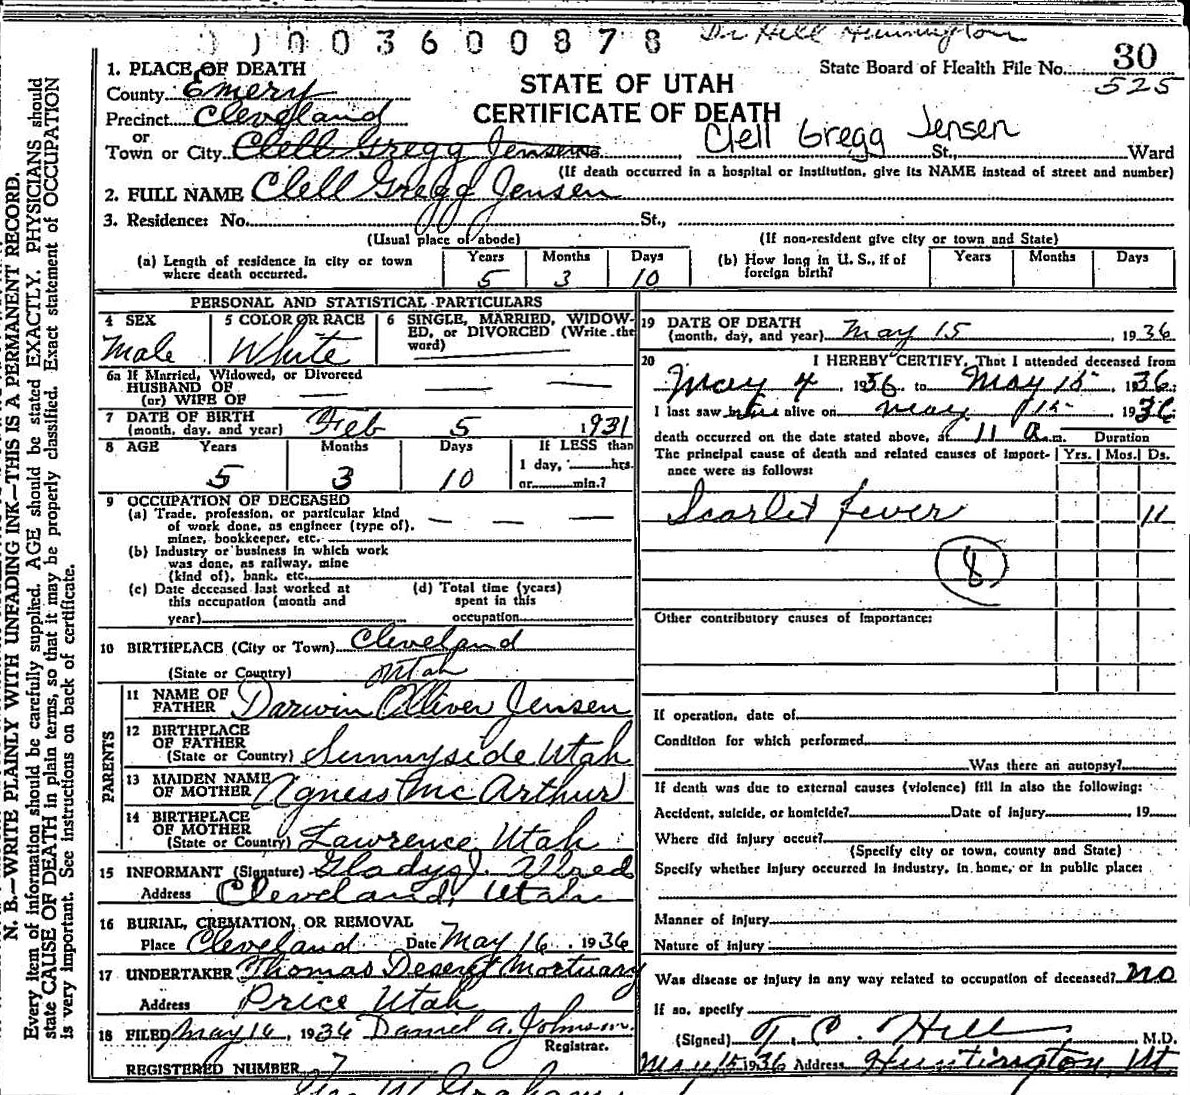 0 0 0 0 3 6 0 0 8 7 8
Dr Hill Huntington
1. PLACE OF DEATH
STATE OF UTAH
CERTIFICATE OF DEATH
State Board of Health File No. 30
525
County Emery
Precinct Cleveland
or
Town or City Clell Gregg Jensen No. Clell Gregg Jensen St., Ward
(If death occurred in a hospital or institution, give its NAME instead of street and number)
2. FULL NAME Clell Gregg Jensen
3. Residence: No. St.,
(Usual place of abode) (If non-resident give city or town and State)
(a) Length of residence in city or town where death occurred. Years 5 Months 3 Days 10
(b) How long in U. S., if of foreign birth? Years Months Days
PERSONAL AND STATISTICAL PARTICULARS
4 SEX Male
5 COLOR OR RACE White
6 SINGLE, MARRIED, WIDOWED, or DIVORCED (Write the word)
6a If Married, Widowed, or Divorced
HUSBAND OF
(or) WIFE OF
7 DATE OF BIRTH (month, day, and year) Feb 5 1931
8 AGE Years 5 Months 3 Days 10 If LESS than 1 day, hrs. or min.?
9 OCCUPATION OF DECEASED
(a) Trade, profession, or particular kind of work done, as engineer (type of), miner, bookkeeper, etc.
(b) Industry or business in which work was done, as railway, mine (kind of), bank, etc.
(c) Date deceased last worked at this occupation (month and year)
(d) Total time (years) spent in this occupation
10 BIRTHPLACE (City or Town) Cleveland
(State or Country) Utah
PARENTS
11 NAME OF FATHER Darwin Olliver Jensen
12 BIRTHPLACE OF FATHER (State or Country) Sunnyside Utah
13 MAIDEN NAME OF MOTHER Agness Mc Arthur
14 BIRTHPLACE OF MOTHER (State or Country) Lawrence Utah
15 INFORMANT (Signature) Gladys J. Allred
Address Cleveland, Utah
16 BURIAL, CREMATION, OR REMOVAL
Place Cleveland Date May 16, 1936
17 UNDERTAKER Thomas Deseret Mortuary
Address Price Utah
18 FILED May 16, 1936 Daniel A. Johnson
Registrar.
REGISTERED NUMBER 7
19 DATE OF DEATH (month, day, and year) May 15, 1936
20 I HEREBY CERTIFY, That I attended deceased from
May 4 1936 to May 15 1936
I last saw him alive on May 15 1936
death occurred on the date stated above, at 11 a.m.
Duration
The principal cause of death and related causes of importance were as follows: Yrs. Mos. Ds.
Scarlet fever 11
8
Other contributory causes of importance:
If operation, date of
Condition for which performed
Was there an autopsy?
If death was due to external causes (violence) fill in also the following:
Accident, suicide, or homicide? Date of injury 19
Where did injury occur?
(Specify city or town, county and State)
Specify whether injury occurred in industry, in home, or in public place:
Manner of injury
Nature of injury
Was disease or injury in any way related to occupation of deceased? no
If so, specify
(Signed) T. C. Hill M.D.
May 15 1936 Address Huntington, Ut
N. B.—WRITE PLAINLY WITH UNFADING INK—THIS IS A PERMANENT RECORD.
Every item of information should be carefully supplied. AGE should be stated EXACTLY. PHYSICIANS should
state CAUSE OF DEATH in plain terms, so that it may be properly classified. Exact statement of OCCUPATION
is very important. See instructions on back of certificate.